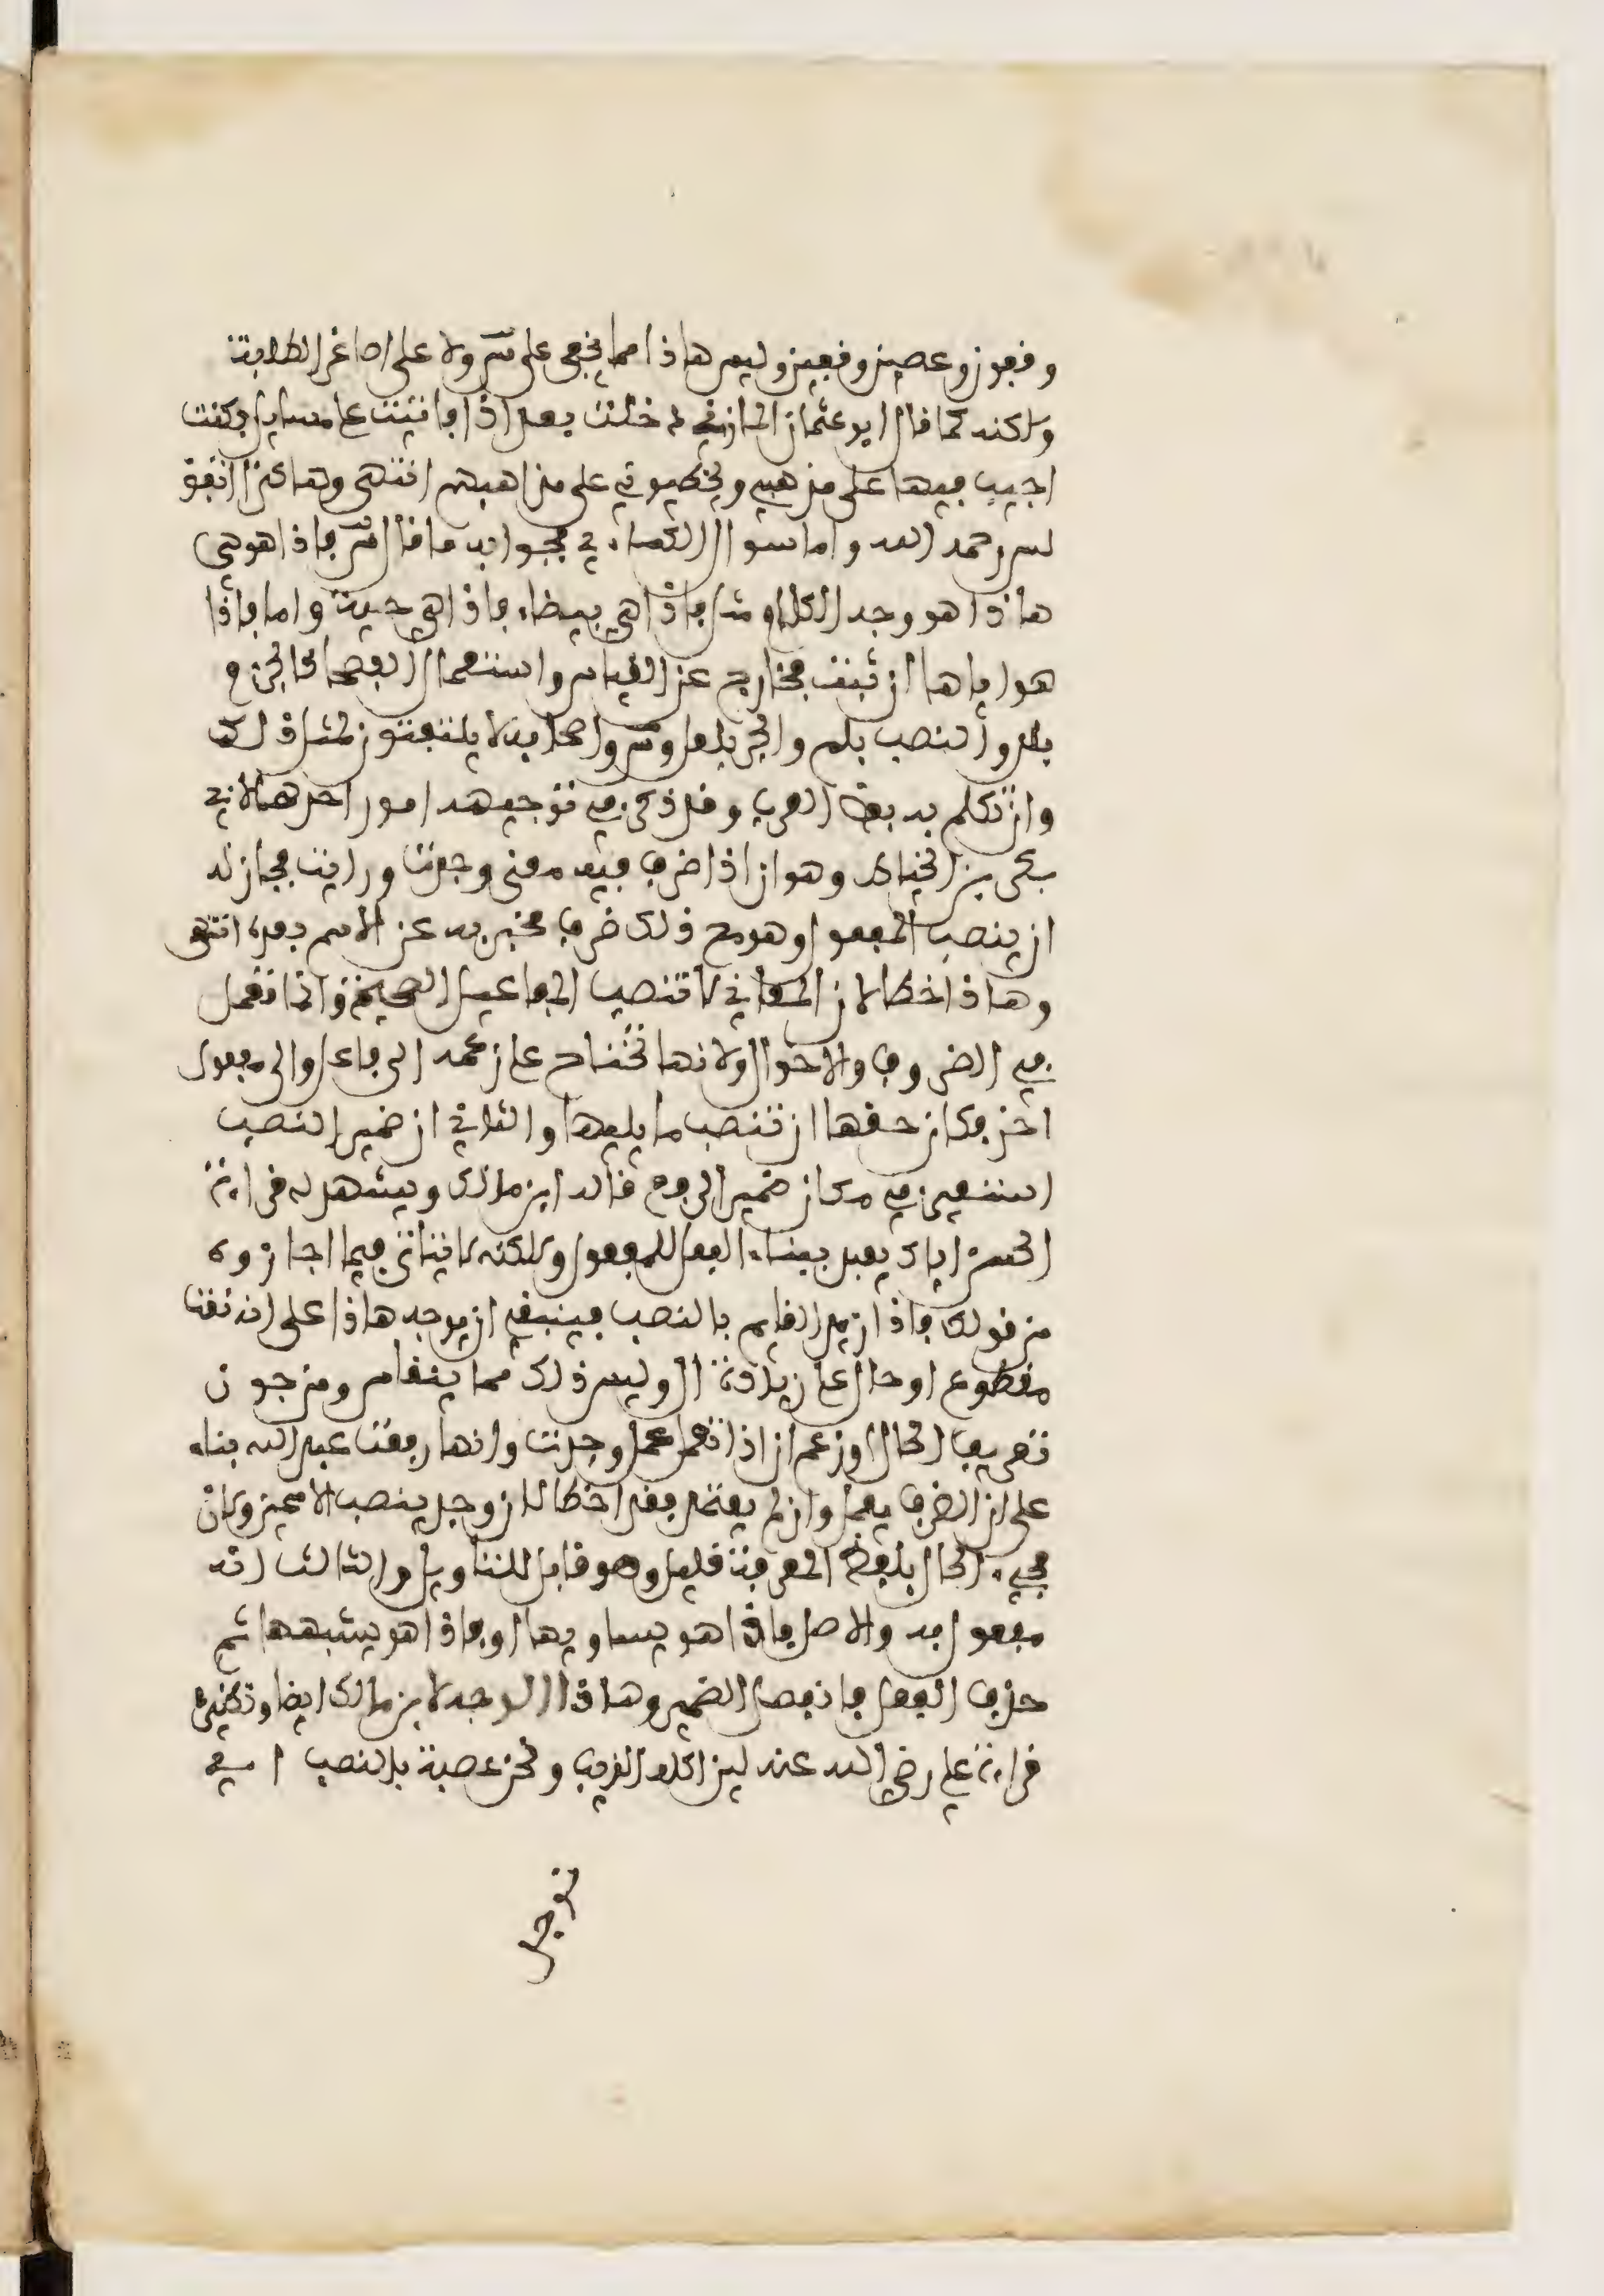 وقفون وعصين وقفين وليس هاذا مما يخفى على س ولا على اصاغر الطلبة
ولاكنه كما قال ابو عثمان المازني دخلت بغداذ فالقيت علي مسايل فكنت
اجيب فيها على مذهبي ويخطيوني على مذاهبهم انتهى وهاكذا اتفق
لس رحمه الله واما سوال الكساءي فجوابه ما قال س فاذا هو هي
هاذا هو وجه الكلام مثل فاذا هي بيضاء فاذا هي حية واما فاذا
هو اياها ان ثبت فخارج عن القياس واستعمال الفصحا كالجزم
بلن والنصب بلم والجر بلعل وس واصحابه لا يلتفتون لمثل ذلك
وان تكلم به بعض العرب وقد ذكر في توجيهه امور احدها لابي
بكر بن الخياط وهو ان اذا ظرف فيه معنى وجدت ورايت فجاز له
ان ينصب المفعول وهو مع ذلك ظرف مخبر به عن الاسم بعده انتهى
وهاذا خطا لان المعاني لا تنصب المفاعيل الصحيحة وانما تعمل
في الظروف والاحوال ولانها تحتاج على زعمه الى فاعل والى مفعول
اخر فكان حقها ان تنصب ما يليها والثاني ان ضمير النصب
استعير في مكان ضمير الرفع قاله ابن مالك ويشهد له قراءة
الحسن اياك يعبد ببناء الفعل للمفعول ولاكنه لا يتاتى فيما اجازوه
من قولك فاذا زيد القايم بالنصب فينبغي ان يوجه هاذا على انه نعت
مقطوع او حال على زيادة ال وليس ذلك مما ينقاس ومن جوز
تعريف الحال او زعم ان اذا تعمل عمل وجدت وانها رفعت عبد الله بناء
على ان الظرف يعمل وان لم يعتمد فقد اخطا لان وجد ينصب الاسمين ولان
مجيء الحال بلفظ المعرفة قليل وهو قابل للتاويل والثالث انه
مفعول به والاصل فاذا هو يساويها او فاذا هو يشبهها ثم
حذف الفعل فانفصل الضمير وهاذا الوجه لابن مالك ايضا ونظيره
قراءة علي رضي الله عنه لين اكله الذيب ونحن عصبة بالنصب اي
نوجد